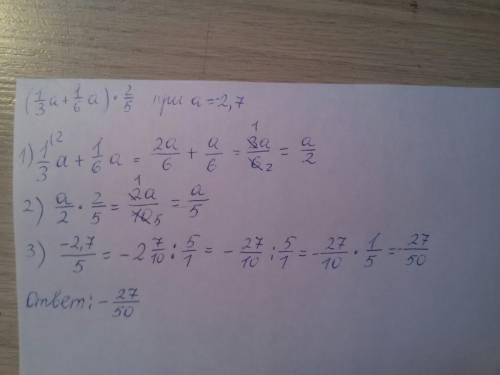 (1/3 a + 1/6 a) · 2/5 при a = -2,7
1) 1/3^(2 a + 1/6 a = 2a/6 + a/6 = 3a/6 1 2 = a/2
2) a/2 · 2/5 = 2a/10 1 5 = a/5
3) -2,7/5 = -2 7/10 : 5/1 = - 27/10 : 5/1 = - 27/10 · 1/5 = - 27/50
Ответ: - 27/50